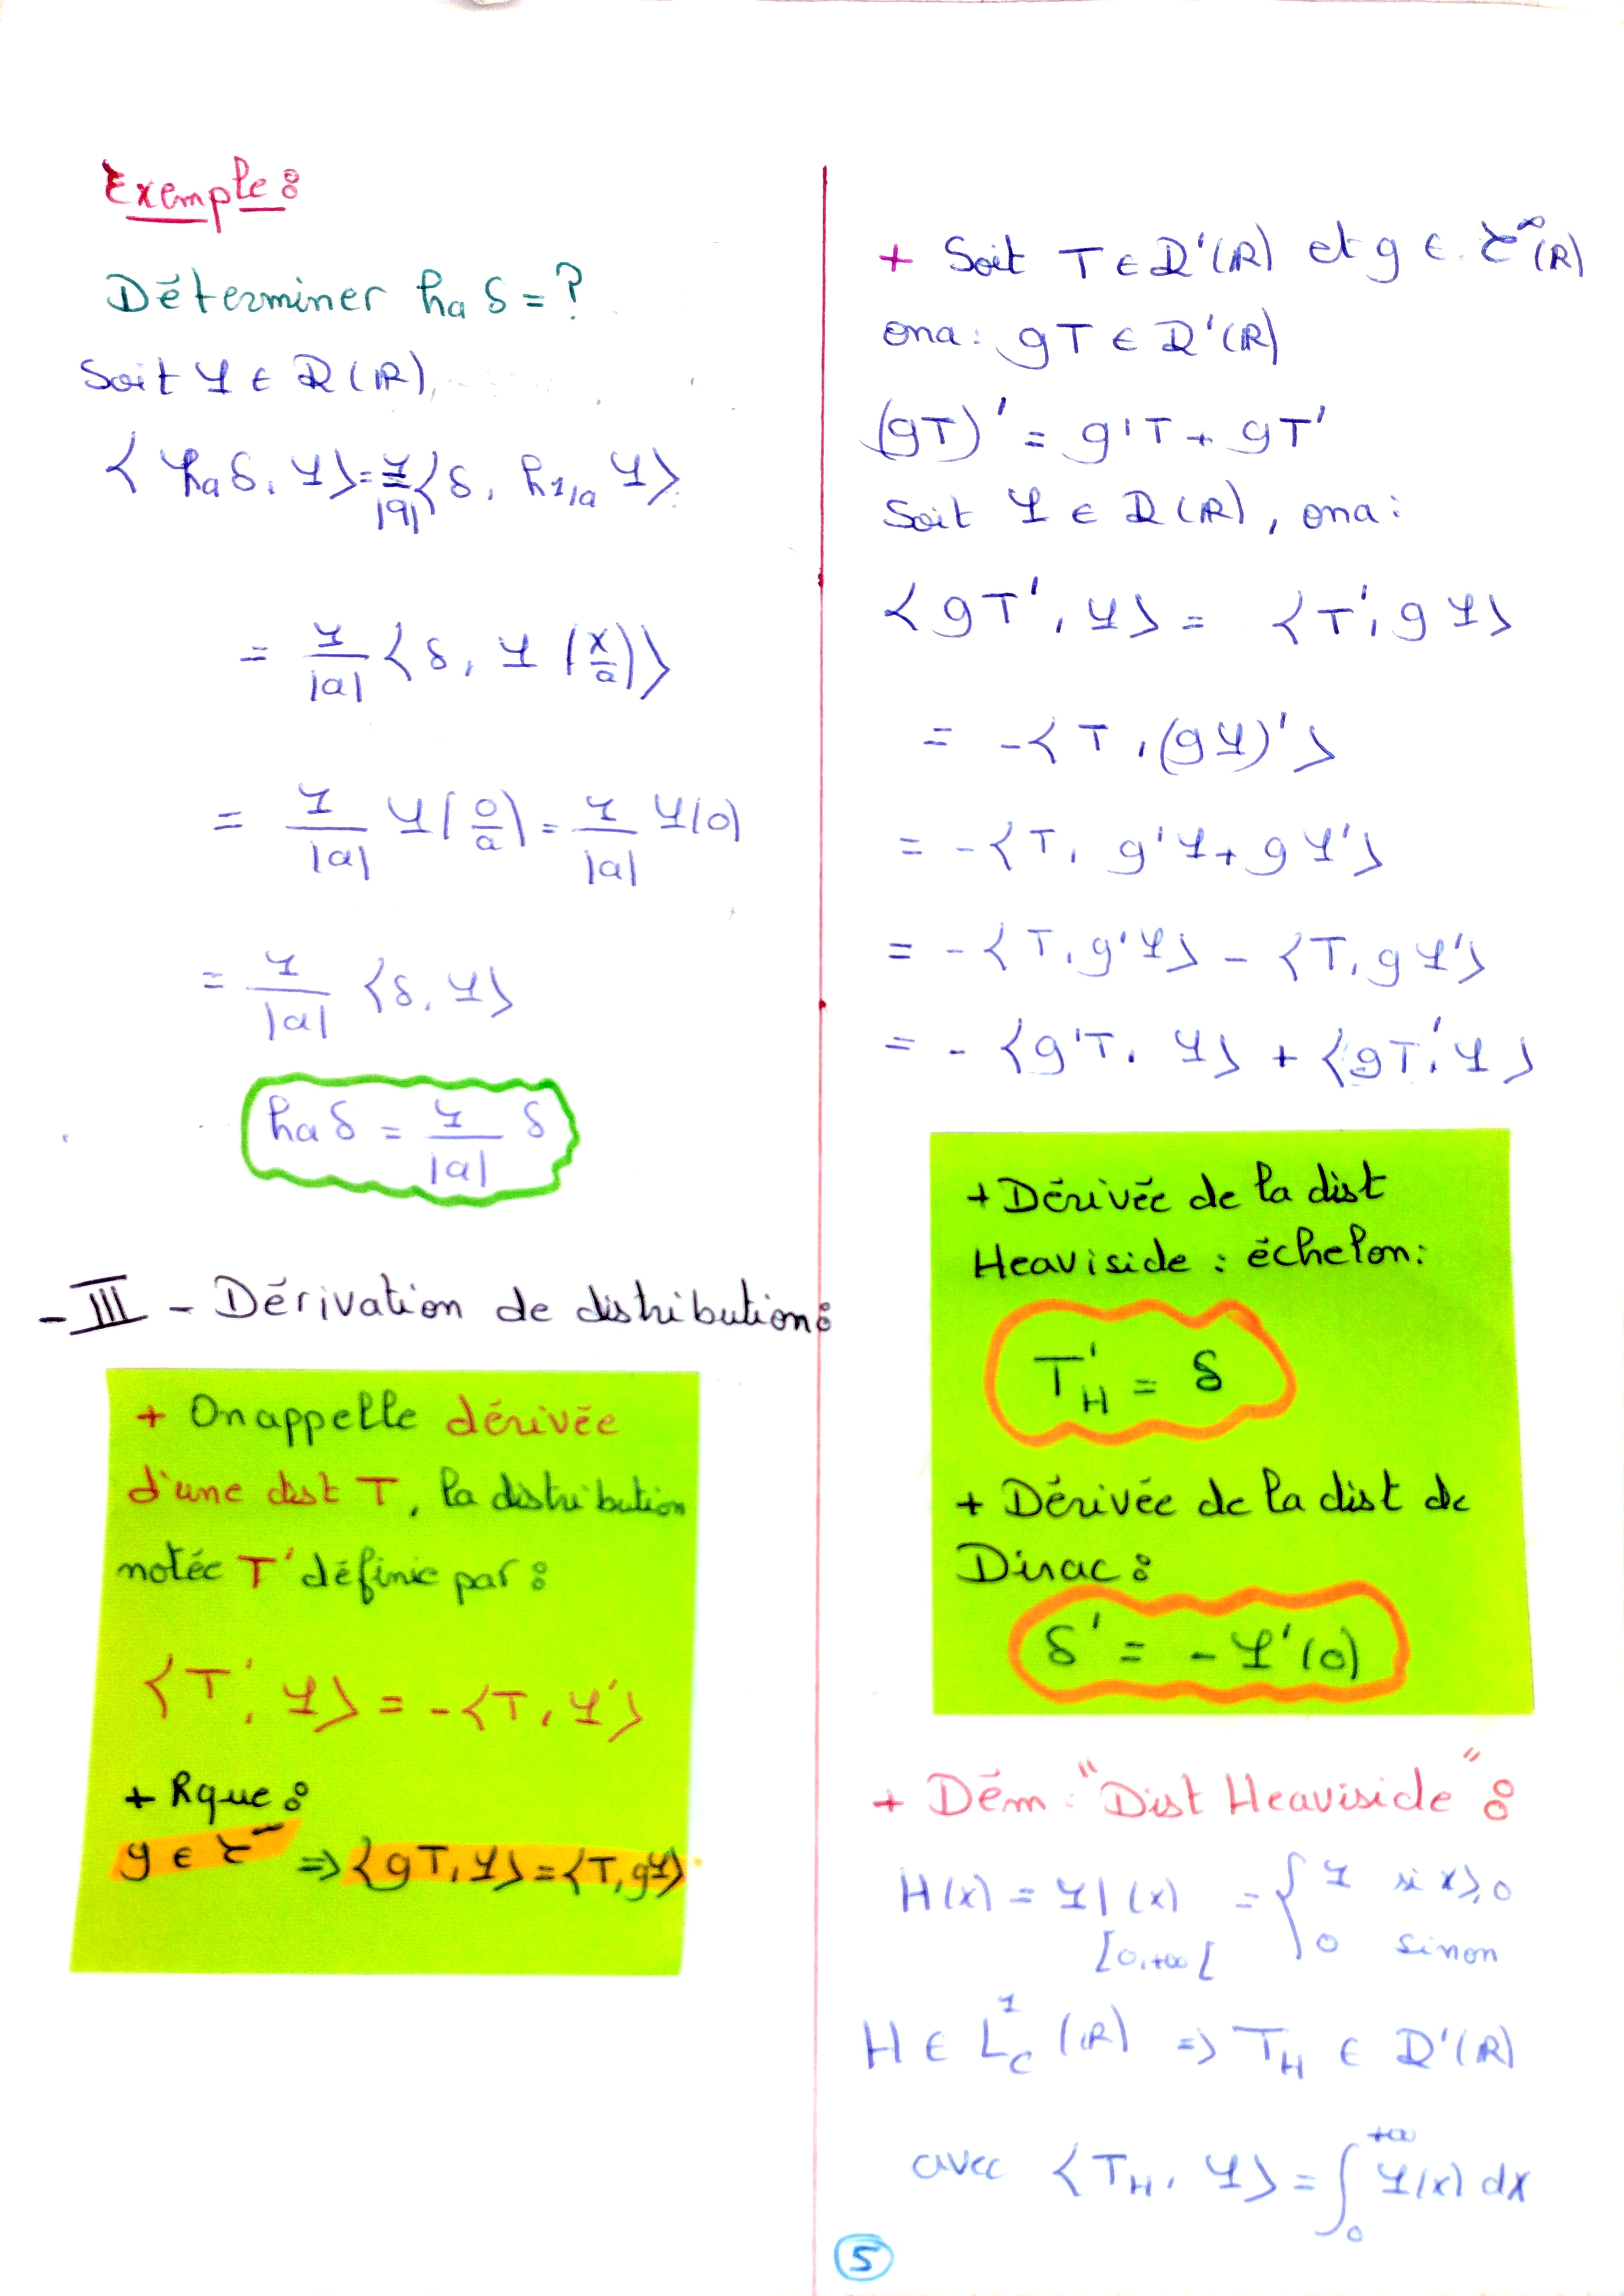 Exemple :
Déterminer ha δ = ?
Soit φ ∈ D(ℝ),
⟨ha δ, φ⟩ = 1/|a| ⟨δ, h1/a φ⟩
= 1/|a| ⟨δ, φ(x/a)⟩
= 1/|a| φ(0/a) = 1/|a| φ(0)
= 1/|a| ⟨δ, φ⟩
ha δ = 1/|a| δ
- III - Dérivation de distribution :
+ On appelle dérivée
d'une dist T, la distribution
notée T' définie par :
⟨T', φ⟩ = -⟨T, φ'⟩
+ Rque :
g ∈ C^∞ ⇒ ⟨gT, φ⟩ = ⟨T, gφ⟩
+ Soit T ∈ D'(ℝ) et g ∈ C^∞(ℝ)
ona : gT ∈ D'(ℝ)
(gT)' = g'T + gT'
Soit φ ∈ D(ℝ), ona :
⟨gT', φ⟩ = ⟨T', gφ⟩
= -⟨T, (gφ)'⟩
= -⟨T, g'φ + gφ'⟩
= -⟨T, g'φ⟩ - ⟨T, gφ'⟩
= - ⟨g'T, φ⟩ + ⟨gT', φ⟩
+ Dérivée de la dist
Heaviside : échelon :
T'H = δ
+ Dérivée de la dist de
Dirac :
δ' = - φ'(0)
+ Dém : "Dist Heaviside" :
H(x) = 1|[0,+∞[ (x) = { 1 si x ≥ 0
0 sinon
H ∈ L^1_C (ℝ) ⇒ TH ∈ D'(ℝ)
avec ⟨TH, φ⟩ = ∫_0^{+∞} φ(x) dx
5